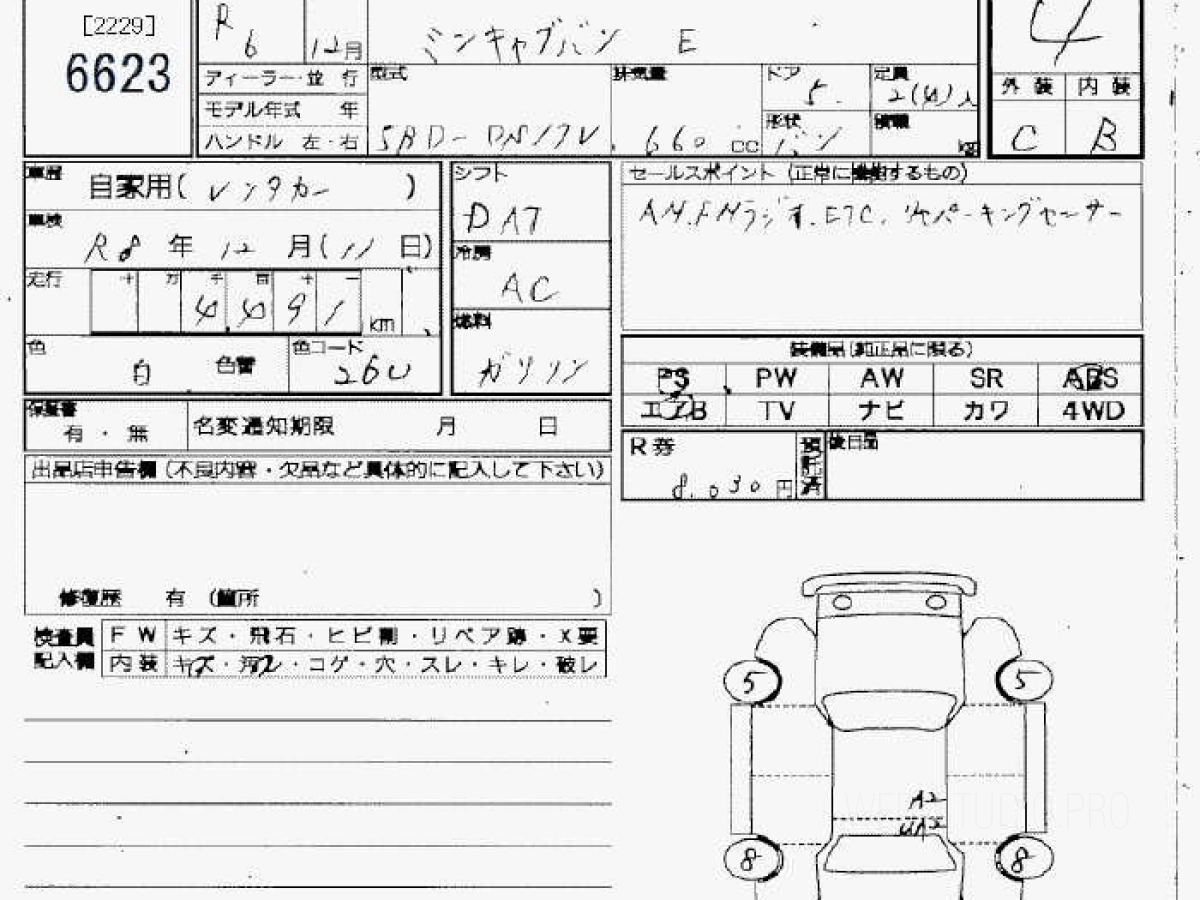 [2229]
6623
R 6
12月
ミニキャブバン E
4
ディーラー・並 行
モデル年式 年
ハンドル 左・右
型式
5BD-DS17V
排気量
660 cc
ドア
5
形状
バン
定員
2(4)人
積載
kg
外 装 内 装
C B
車歴
自家用(レンタカー)
車検
R8年12月(11日)
走行
十 万 千 百 十 一
4 4 9 1 km
色
白 色替
色コード
26U
シフト
DAT
冷房
AC
燃料
ガソリン
セールスポイント (正常に機能するもの)
AM.FMラジオ.ETC.リヤパーキングセンサー
装備品(純正品に限る)
PS PW AW SR ABS
エアB TV ナビ カワ 4WD
保証書
有・無
名変通知期限 月 日
R券
8.030円
預託済
後日品
出品店申告欄(不良内容・欠品など具体的に記入して下さい)
修復歴 有 (箇所 )
検査員
記入欄
F W キズ・飛石・ヒビ割・リペア跡・X要
内装 キズ・汚レ・コゲ・穴・スレ・キレ・破レ
5 5
A2
UA2
8 8